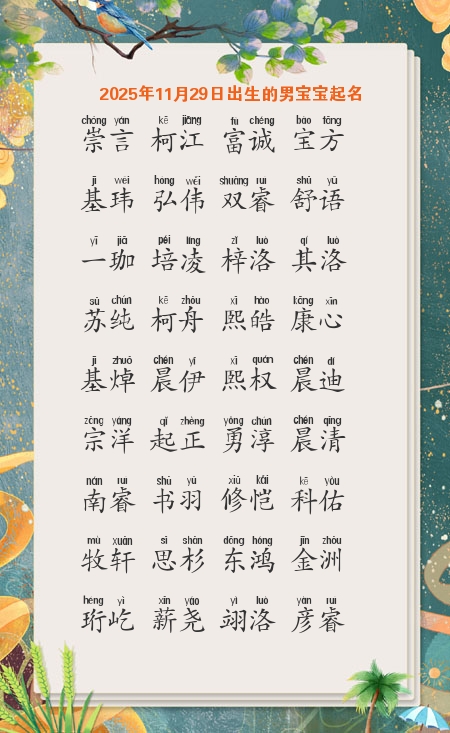 2025年11月29日出生的男宝宝起名
chóng yán kē jiāng fù chéng bǎo fāng
崇言 柯江 富诚 宝方
jī wěi hóng wěi shuāng ruì shū yǔ
基玮 弘伟 双睿 舒语
yī jiā péi líng zǐ luò qí luò
一珈 培凌 梓洛 其洛
sū chún kē zhōu xī hào kāng xīn
苏纯 柯舟 熙皓 康心
jī zhuō chén yī xī quán chén dí
基焯 晨伊 熙权 晨迪
zōng yáng qǐ zhèng yǒng chún chén qīng
宗洋 起正 勇淳 晨清
nán ruì shū yǔ xiū kǎi kē yòu
南睿 书羽 修恺 科佑
mù xuān sī shān dōng hóng jīn zhōu
牧轩 思杉 东鸿 金洲
héng yì xīn yáo yì luò yàn ruì
珩屹 薪尧 翊洛 彦睿